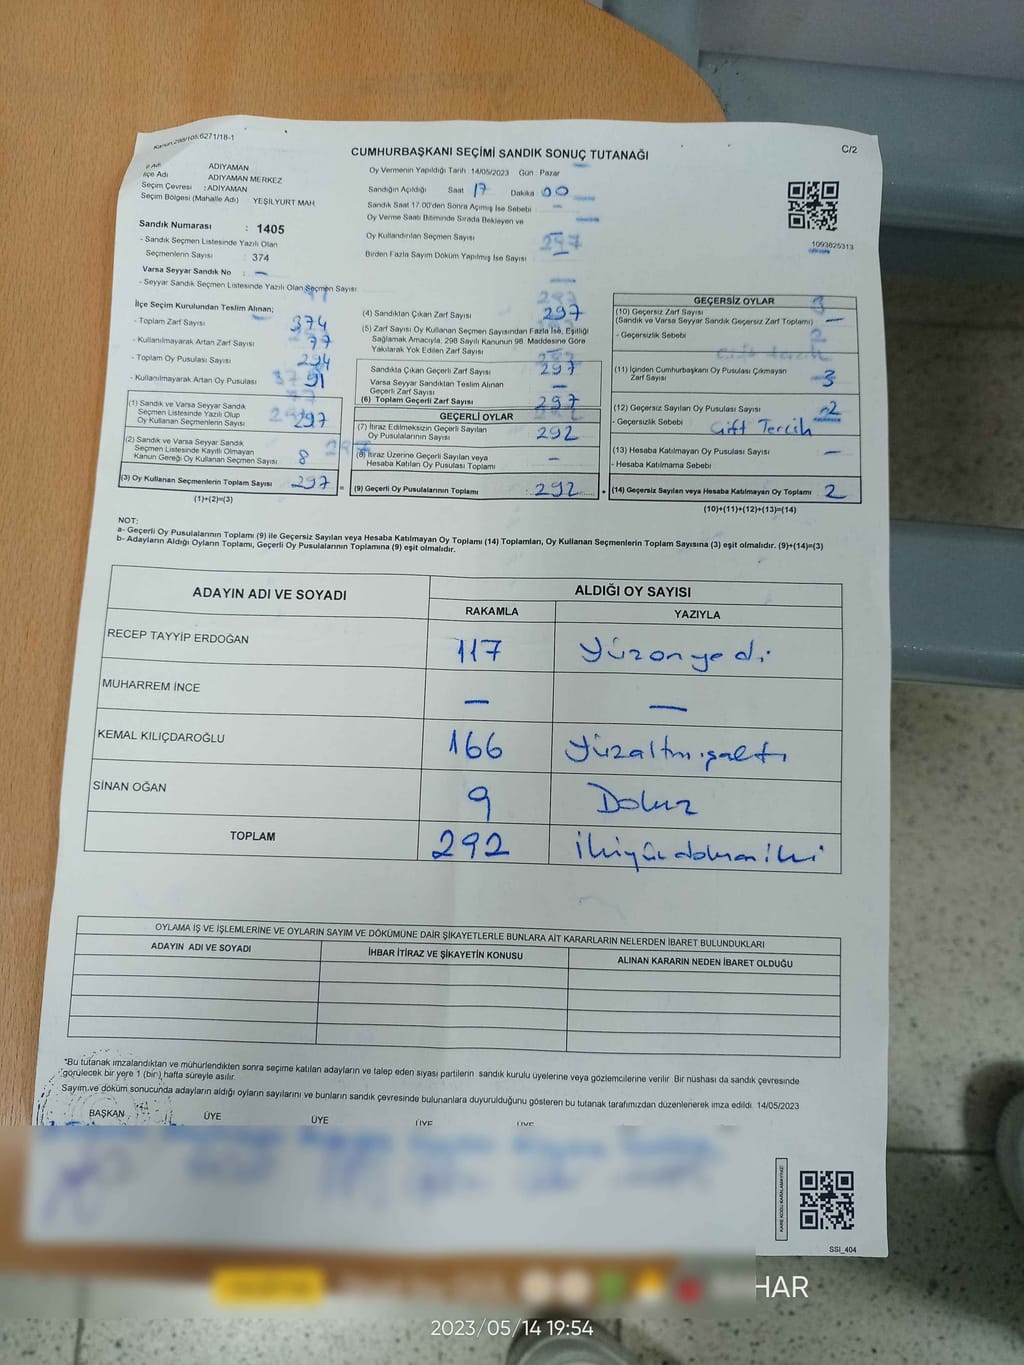 Kanun:298/105.6271/18-1
CUMHURBAŞKANI SEÇİMİ SANDIK SONUÇ TUTANAĞI
C/2
İl Adı ADIYAMAN
İlçe Adı ADIYAMAN MERKEZ
Seçim Çevresi : ADIYAMAN
Seçim Bölgesi (Mahalle Adı) YEŞİLYURT MAH
Sandık Numarası : 1405
- Sandık Seçmen Listesinde Yazılı Olan
Seçmenlerin Sayısı : 374
Varsa Seyyar Sandık No : –
- Seyyar Sandık Seçmen Listesinde Yazılı Olan Seçmen Sayısı
Oy Vermenin Yapıldığı Tarih : 14/05/2023 Gün : Pazar
Sandığın Açıldığı Saat 17 Dakika 00
Sandık Saat 17:00'den Sonra Açılmış İse Sebebi –
Oy Verme Saati Bitiminde Sırada Bekleyen ve
Oy Kullandırılan Seçmen Sayısı
Birden Fazla Sayım Döküm Yapılmış İse Sayısı
1093825313
İlçe Seçim Kurulundan Teslim Alınan;
- Toplam Zarf Sayısı 374
- Kullanılmayarak Artan Zarf Sayısı 77
- Toplam Oy Pusulası Sayısı
- Kullanılmayarak Artan Oy Pusulası
(1) Sandık ve Varsa Seyyar Sandık
Seçmen Listesinde Yazılı Olup
Oy Kullanan Seçmen Sayısı 297
(2) Sandık ve Varsa Seyyar Sandık
Seçmen Listesinde Kayıtlı Olmayan
Kanun Gereği Oy Kullanan Seçmen Sayısı 8
(3) Oy Kullanan Seçmenlerin Toplam Sayısı 297
(1)+(2)=(3)
(4) Sandıktan Çıkan Zarf Sayısı 297
(5) Zarf Sayısı Oy Kullanan Seçmen Sayısından Fazla İse, Eşitliği
Sağlamak Amacıyla, 298 Sayılı Kanunun 98. Maddesine Göre
Yakılarak Yok Edilen Zarf Sayısı
Sandıkta Çıkan Geçerli Zarf Sayısı 297
Varsa Seyyar Sandıktan Teslim Alınan
Geçerli Zarf Sayısı –
(6) Toplam Geçerli Zarf Sayısı 297
GEÇERLİ OYLAR
(7) İtiraz Edilmeksizin Geçerli Sayılan
Oy Pusulalarının Sayısı 292
(8) İtiraz Üzerine Geçerli Sayılan veya
Hesaba Katılan Oy Pusulası Toplamı –
(9) Geçerli Oy Pusulalarının Toplamı : 292
GEÇERSİZ OYLAR
(10) Geçersiz Zarf Sayısı
(Sandık ve Varsa Seyyar Sandık Geçersiz Zarf Toplamı) –
- Geçersizlik Sebebi
(11) İçinden Cumhurbaşkanı Oy Pusulası Çıkmayan
Zarf Sayısı 3
(12) Geçersiz Sayılan Oy Pusulası Sayısı 2
- Geçersizlik Sebebi Çift Tercih
(13) Hesaba Katılmayan Oy Pusulası Sayısı –
- Hesaba Katılmama Sebebi
(14) Geçersiz Sayılan veya Hesaba Katılmayan Oy Toplamı 2
(10)+(11)+(12)+(13)=(14)
NOT:
a- Geçerli Oy Pusulalarının Toplamı (9) ile Geçersiz Sayılan veya Hesaba Katılmayan Oy Toplamı (14) Toplamları, Oy Kullanan Seçmenlerin Toplam Sayısına (3) eşit olmalıdır. (9)+(14)=(3)
b- Adayların Aldığı Oyların Toplamı, Geçerli Oy Pusulalarının Toplamına (9) eşit olmalıdır.
ADAYIN ADI VE SOYADI ALDIĞI OY SAYISI
RAKAMLA YAZIYLA
RECEP TAYYİP ERDOĞAN 117 Yüzonyedi
MUHARREM İNCE – –
KEMAL KILIÇDAROĞLU 166 Yüzaltmışaltı
SİNAN OĞAN 9 Dokuz
TOPLAM 292 ikiyüzdoksaniki
OYLAMA İŞ VE İŞLEMLERİNE VE OYLARIN SAYIM VE DÖKÜMÜNE DAİR ŞİKAYETLERLE BUNLARA AİT KARARLARIN NELERDEN İBARET BULUNDUKLARI
ADAYIN ADI VE SOYADI İHBAR İTİRAZ VE ŞİKAYETİN KONUSU ALINAN KARARIN NEDEN İBARET OLDUĞU
*Bu tutanak imzalandıktan ve mühürlendikten sonra seçime katılan adayların ve talep eden siyasi partilerin sandık kurulu üyelerine veya gözlemcilerine verilir. Bir nüshası da sandık çevresinde
görülecek bir yere 1 (bir) hafta süreyle asılır.
Sayım ve döküm sonucunda adayların aldığı oyların sayılarını ve bunların sandık çevresinde bulunanlara duyurulduğunu gösteren bu tutanak tarafımızdan düzenlenerek imza edildi. 14/05/2023
BAŞKAN ÜYE ÜYE ÜYE ÜYE
KARE KODU KARALAMAYINIZ!
SSI_404
HAR
2023/05/14 19:54